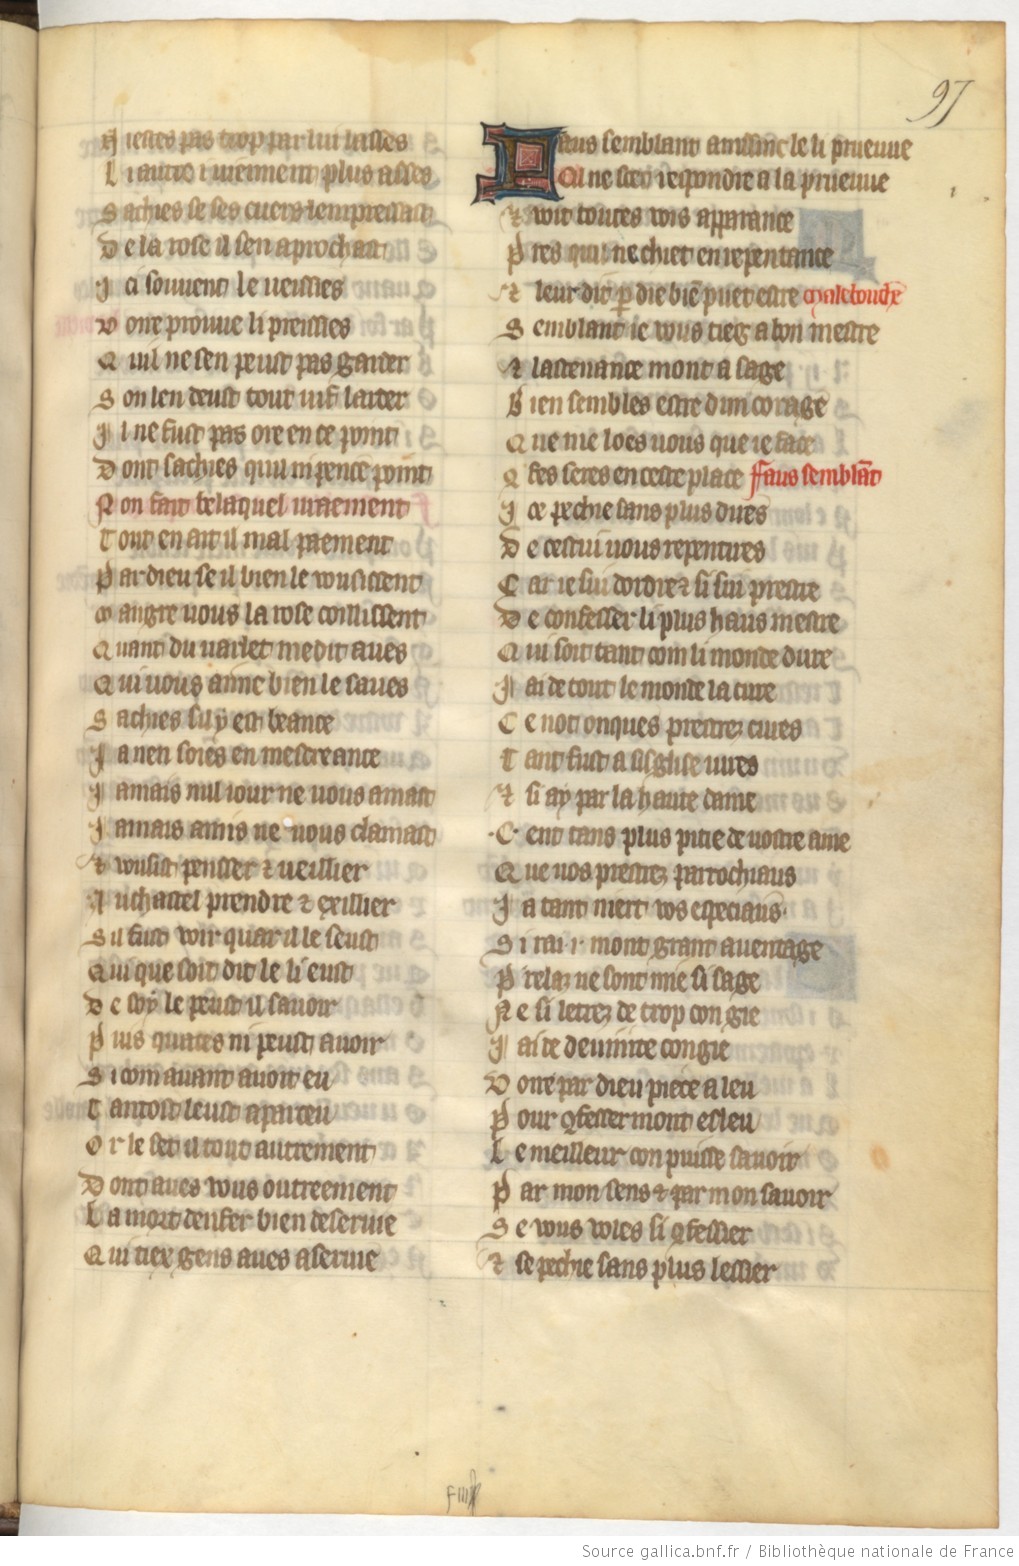 97
N iestes pas trop par lui lasses
L i autre i viennent plus asses
S achies se ses cuers lempressast
D e la rose il sen aprochast
J a souvent le veissies
V oire prouve li preissies
Q uil ne sen peust pas garder
S on len deust tout vif larder
Il ne fust pas ore en ce point
D ont sachies quil ni pence point
N on fait belaquel vraement
T out en ait il mal paement
P ar dieu se il bien le vousissent
M augre vous la rose coillissent
Q uant du varlet medit aves
Q ui vous aime bien le saves
S achies sil y est beance
J a nen soies en mescreance
J amais nul iour ne vous amast
J amais amis ne vous clamast
⁊ vousist pensser ⁊ veillier
A u chastel prendre ⁊ exillier
S il fust voir quar il le seust
Q ui que soit dit le li eust
D e soy le peust il savoir
P uis quaces ni peust avoir
S i com avant avoit eu
T antost leust aparceu
O r le fet il tout autrement
D ont aves vous outreement
L a mort denfer bien deservie
Q ui tiex gens aves aservie
Faus semblant ainssinc le li prueuve
Cil ne scet respondre a la prueuve
⁊ voit toutes vois apparance
P res quil ne chiet en repentance
⁊ leur dit p̱ die biē puet estre Malebouche
S emblant ie vous tieg a bon mestre
⁊ lastenance mont a sage
B ien sembles estre dun corage
Q ue me loes vous que ie face
C fes seres en ceste place Faus semblāt
J ce pechie sans plus dires
D e cestui vous repentires
C ar ie sui dordre ⁊ si sui prestre
D e confesser li plus haus mestre
Q ui soit tant com li monde dure
J ai de tout le monde la cure
C e not onques prestrez cures
T ant fust a sesglise iures
⁊ si ay par la haute dame
C ent tans plus pitie de vostre ame
Q ue vos prestrez parrochiaus
J a tant niert vos especiaus
S i rai i mont grant aventage
P relaz ne sont mie si sage
N e si letrez de trop con gie
J ai de devinite congie
V oire par dieu piece a leu
P our 9fesser mont esleu
L e meilleur con puisse savoir
P ar mon sens ⁊ par mon savoir
S e vous voles si 9fessier
⁊ se pechie sans plus lessier
Source gallica.bnf.fr / Bibliothèque nationale de France